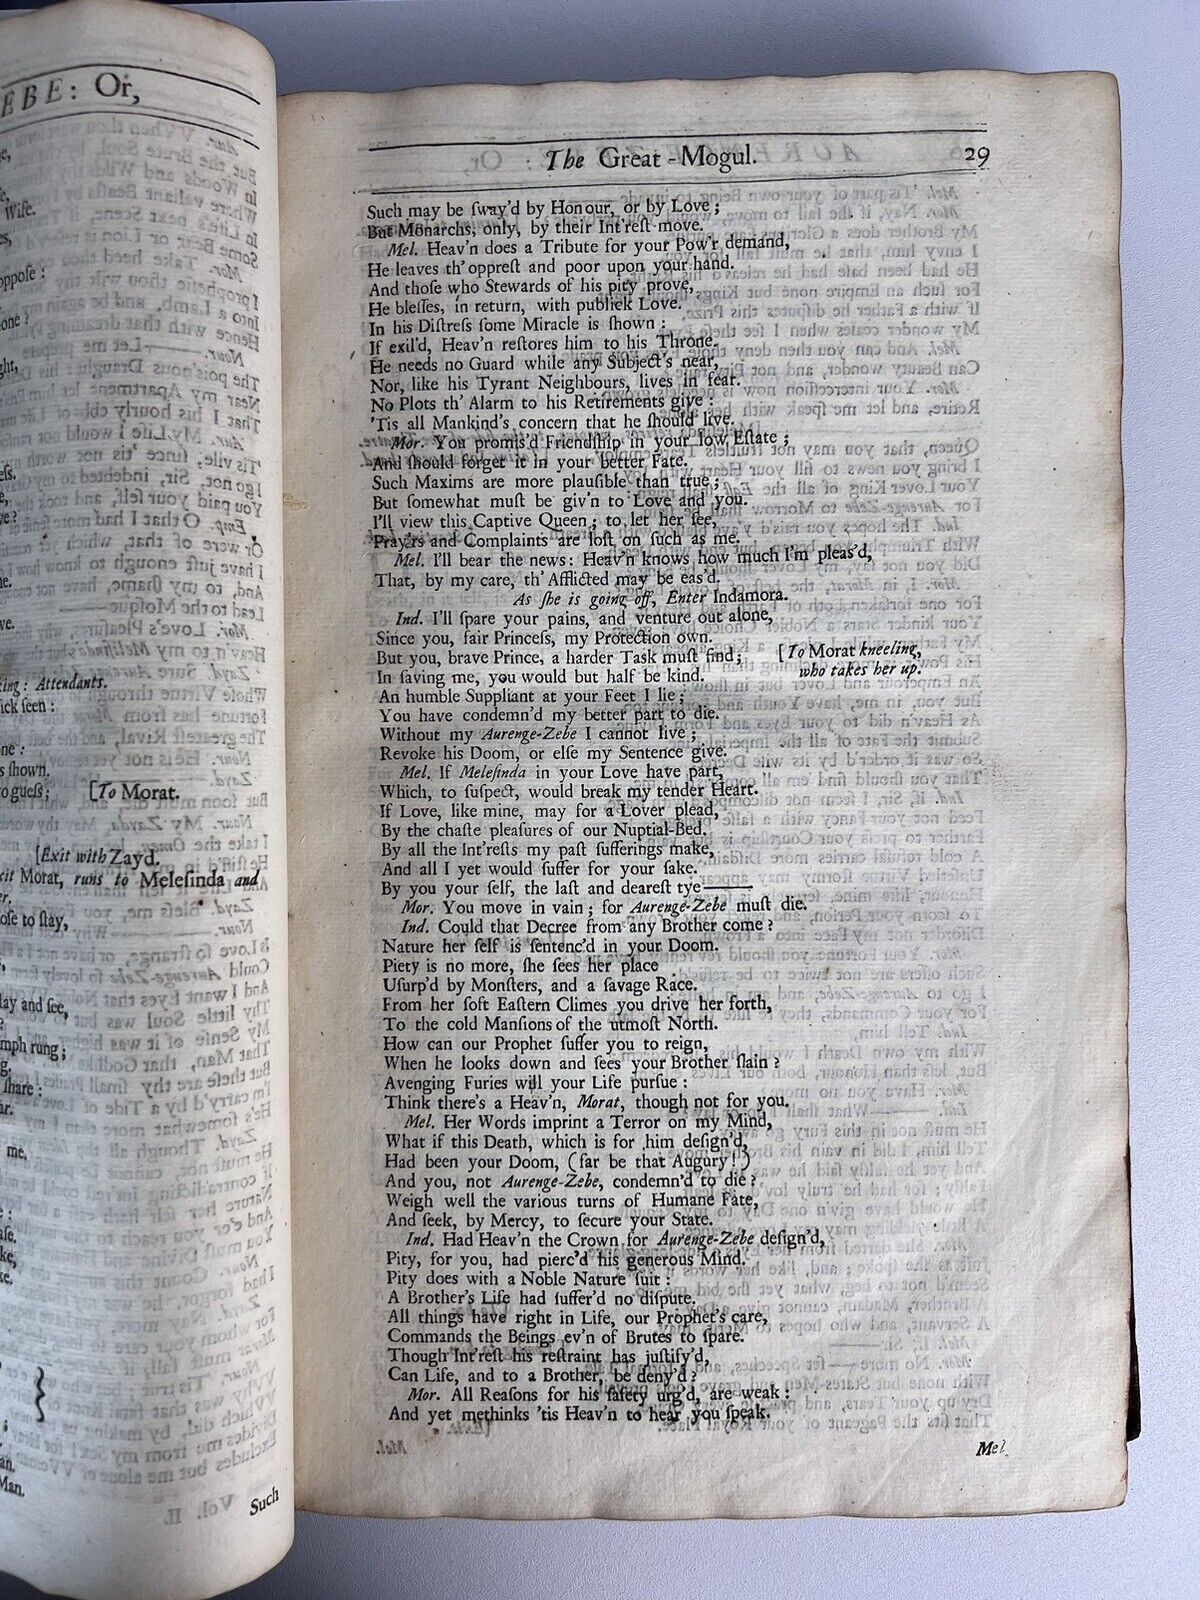 EBE: Or,
Wife.
oppose :
one ?
ght,
king: Attendants.
ick seen :
one :
s shown.
o guess; [To Morat.
[Exit with Zayd.
xit Morat, runs to Melesinda and
ose to stay,
lay and see,
mph rung;
share :
me,
Man.
Such
The Great-Mogul. 29
Such may be ſway'd by Honour, or by Love;
But Monarchs, only, by their Int'reſt move.
Mel. Heav'n does a Tribute for your Pow'r demand,
He leaves th' oppreſt and poor upon your hand.
And thoſe who Stewards of his pity prove,
He bleſſes, in return, with publick Love.
In his Diſtreſs ſome Miracle is ſhown :
If exil'd, Heav'n reſtores him to his Throne.
He needs no Guard while any Subject's near,
Nor, like his Tyrant Neighbours, lives in fear.
No Plots th' Alarm to his Retirements give :
'Tis all Mankind's concern that he ſhould live.
Mor. You promis'd Friendſhip in your low Eſtate ;
And ſhould forget it in your better Fate.
Such Maxims are more plauſible than true ;
But ſomewhat muſt be giv'n to Love and you.
I'll view this Captive Queen ; to let her ſee,
Pray'rs and Complaints are loſt on ſuch as me.
Mel. I'll bear the news: Heav'n knows how much I'm pleas'd,
That, by my care, th' Afflicted may be eas'd.
As ſhe is going off, Enter Indamora.
Ind. I'll ſpare your pains, and venture out alone,
Since you, fair Princeſs, my Protection own.
But you, brave Prince, a harder Task muſt find; [To Morat kneeling,
In ſaving me, you would but half be kind. who takes her up.
An humble Suppliant at your Feet I lie ;
You have condemn'd my better part to die.
Without my Aurenge-Zebe I cannot live ;
Revoke his Doom, or elſe my Sentence give.
Mel. If Meleſinda in your Love have part,
Which, to ſuſpect, would break my tender Heart.
If Love, like mine, may for a Lover plead,
By the chaſte pleaſures of our Nuptial-Bed.
By all the Int'reſts my paſt ſufferings make,
And all I yet would ſuffer for your ſake.
By you your ſelf, the laſt and deareſt tye——
Mor. You move in vain ; for Aurenge-Zebe muſt die.
Ind. Could that Decree from any Brother come ?
Nature her ſelf is ſentenc'd in your Doom.
Piety is no more, ſhe ſees her place
Uſurp'd by Monſters, and a ſavage Race.
From her ſoft Eaſtern Climes you drive her forth,
To the cold Manſions of the utmoſt North.
How can our Prophet ſuffer you to reign,
When he looks down and ſees your Brother ſlain ?
Avenging Furies will your Life purſue :
Think there's a Heav'n, Morat, though not for you.
Mel. Her Words imprint a Terror on my Mind,
What if this Death, which is for him deſign'd,
Had been your Doom, (far be that Augury!)
And you, not Aurenge-Zebe, condemn'd to die ?
Weigh well the various turns of Humane Fate,
And ſeek, by Mercy, to ſecure your State.
Ind. Had Heav'n the Crown for Aurenge-Zebe deſign'd,
Pity, for you, had pierc'd his generous Mind.
Pity does with a Noble Nature ſuit :
A Brother's Life had ſuffer'd no diſpute.
All things have right in Life, our Prophet's care,
Commands the Beings ev'n of Brutes to ſpare.
Though Int'reſt his reſtraint has juſtify'd,
Can Life, and to a Brother, be deny'd ?
Mor. All Reaſons for his ſafety urg'd, are weak :
And yet methinks 'tis Heav'n to hear you ſpeak.
Mel.